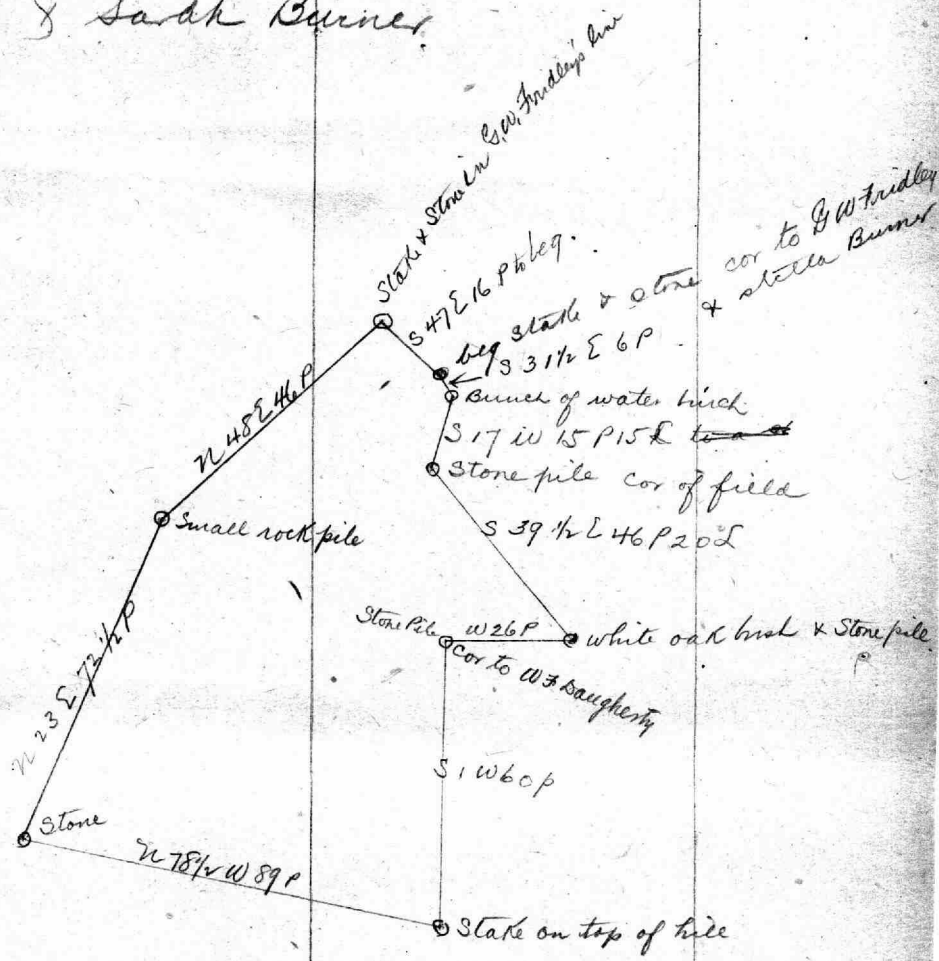 & Sarah Burner
Stake & Stone in G.W. Fridley's line
S 47 E 16 P to beg.
beg Stake & stone cor to G W Fridley
& Stella Burner
S 31 1/2 E 6 P
N 48 E 46 P
Bunch of water birch
S 17 W 15 P 15 L to a
Stone pile cor of field
Small rock pile
S 39 1/2 E 46 P 20 L
Stone Pile W 26 P white oak bush & Stone pile
cor to W F Daugherty
N 23 E 72 1/2 P
S 1 W 60 P
Stone
N 78 1/2 W 89 P
Stake on top of hill